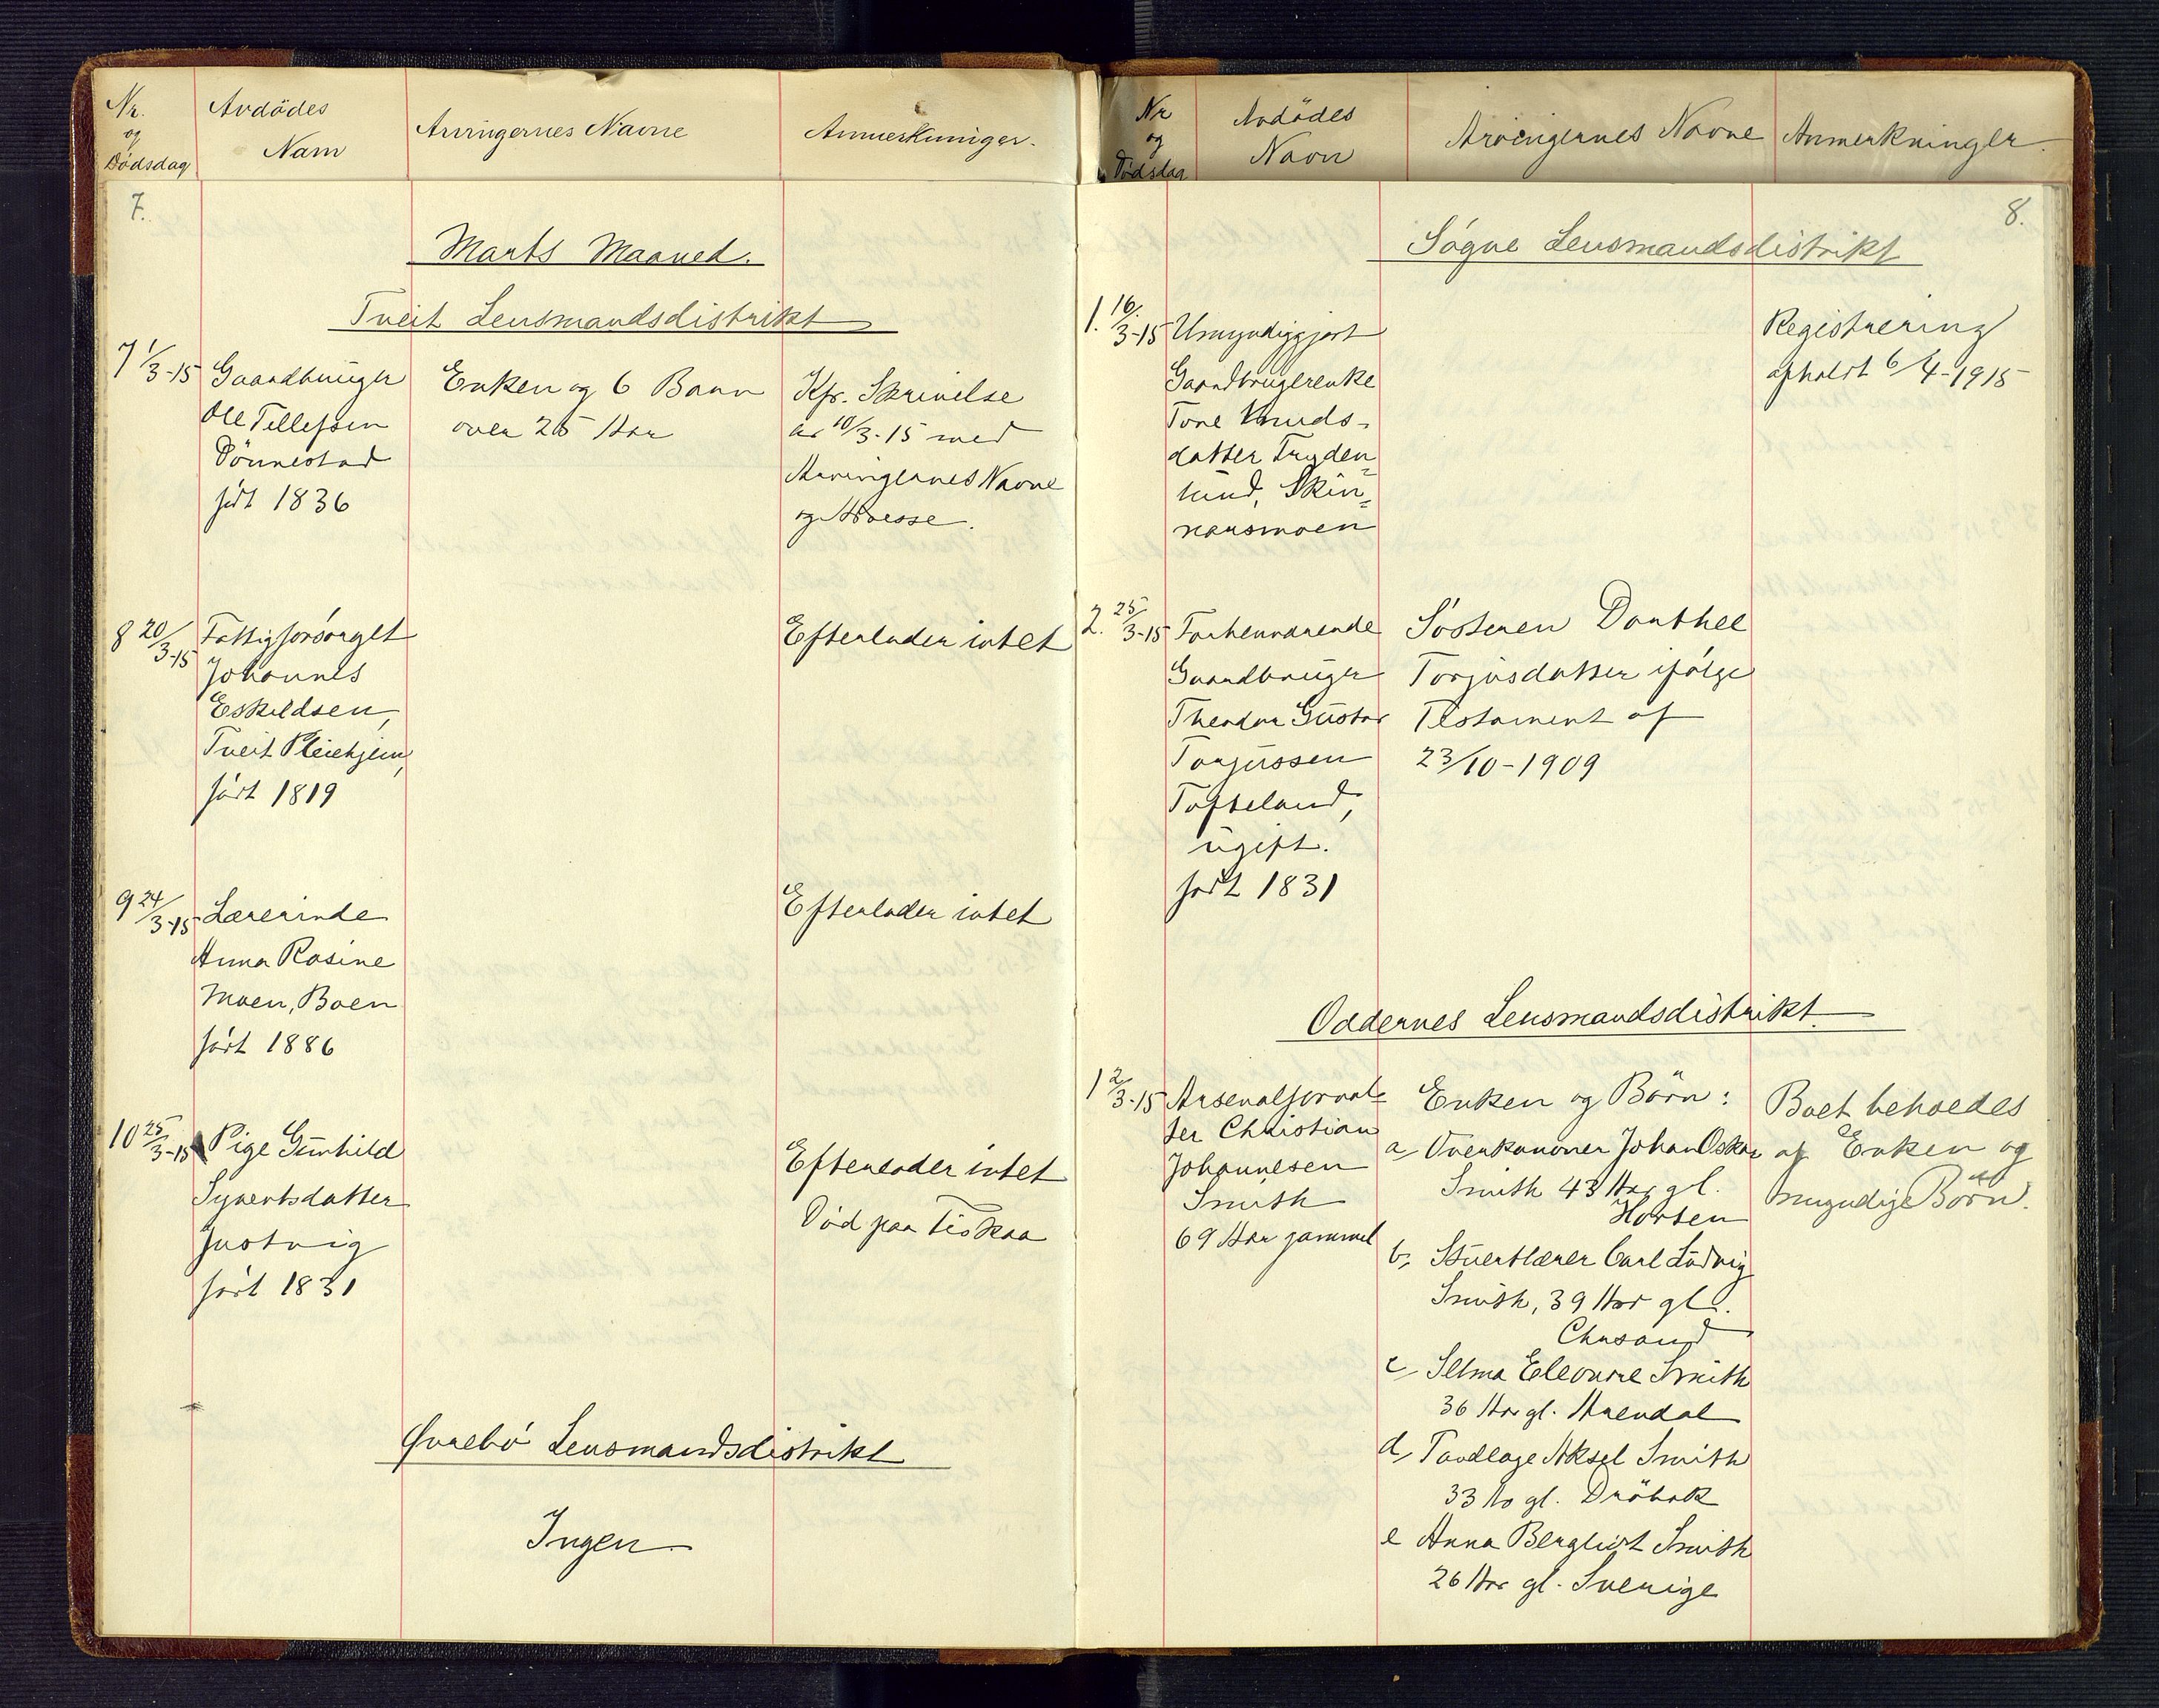 Nr. og Dödsdag
Avdödes Navn
Arvingernes Navne
Anmerkninger.
7.
Marts Maaned.
Tveit Lensmandsdistrikt
7 1/3-15
Gaardbruger
Ole Tellefsen
Dönnestad
født 1836
Enken og 6 Barn
over 25 Aar
Kfr. Skrivelse
av 10/3-15 med
Arvingernes Navne
og Adresse.
8 20/3-15
Fattigforsørget
Johannes
Eskildsen,
Tveit Pleiehjem,
født 1819
Efterlader intet
9 24/3-15
Lærerinde
Anna Rosine
Moen, Boen
født 1886
Efterlader intet
10 25/3-15
Pige Gunhild
Syvertsdatter
Justvig
født 1831
Efterlader intet
Død paa
Øvrebø Lensmandsdistrikt
Ingen
Nr og Dödsdag
Avdödes Navn
Arvingernes Navne
Anmerkninger.
8.
Søgne Lensmandsdistrikt
1. 16/3-15
Umyndiggjort
Gaardbrugerenke
Tone Knuds-
datter Tryden
lund, Skin-
narsmoen
Registrering
afholdt 6/4-1915
2. 25/3-15
Forhenværende
Gaardbruger
Theodor Gustav
Torjussen
Tofteland,
ugift.
født 1831
Søsteren Dorthee
Torjusdatter ifølge
Testament af
23/10-1909
Oddernes Lensmandsdistrikt.
1 2/3-15
Arsenalforval-
ter Christian
Johannesen
Smith
69 Aar gammel
Enken og Börn:
a, Overkanoner Johan Oskar
Smith 43 Aar gl.
Horten
b, Stuertlærer Carl Ludvig
Smith, 39 Aar gl.
Chrsand
c, Selma Eleonore Smith
36 Aar gl. Arendal
d, Tandlæge Aksel Smith
33 Aar gl. Dröbak
e Anna Bergliot Smith
26 Aar gl. Sverige
Boet behoedes
af Enken og
myndige Börn.